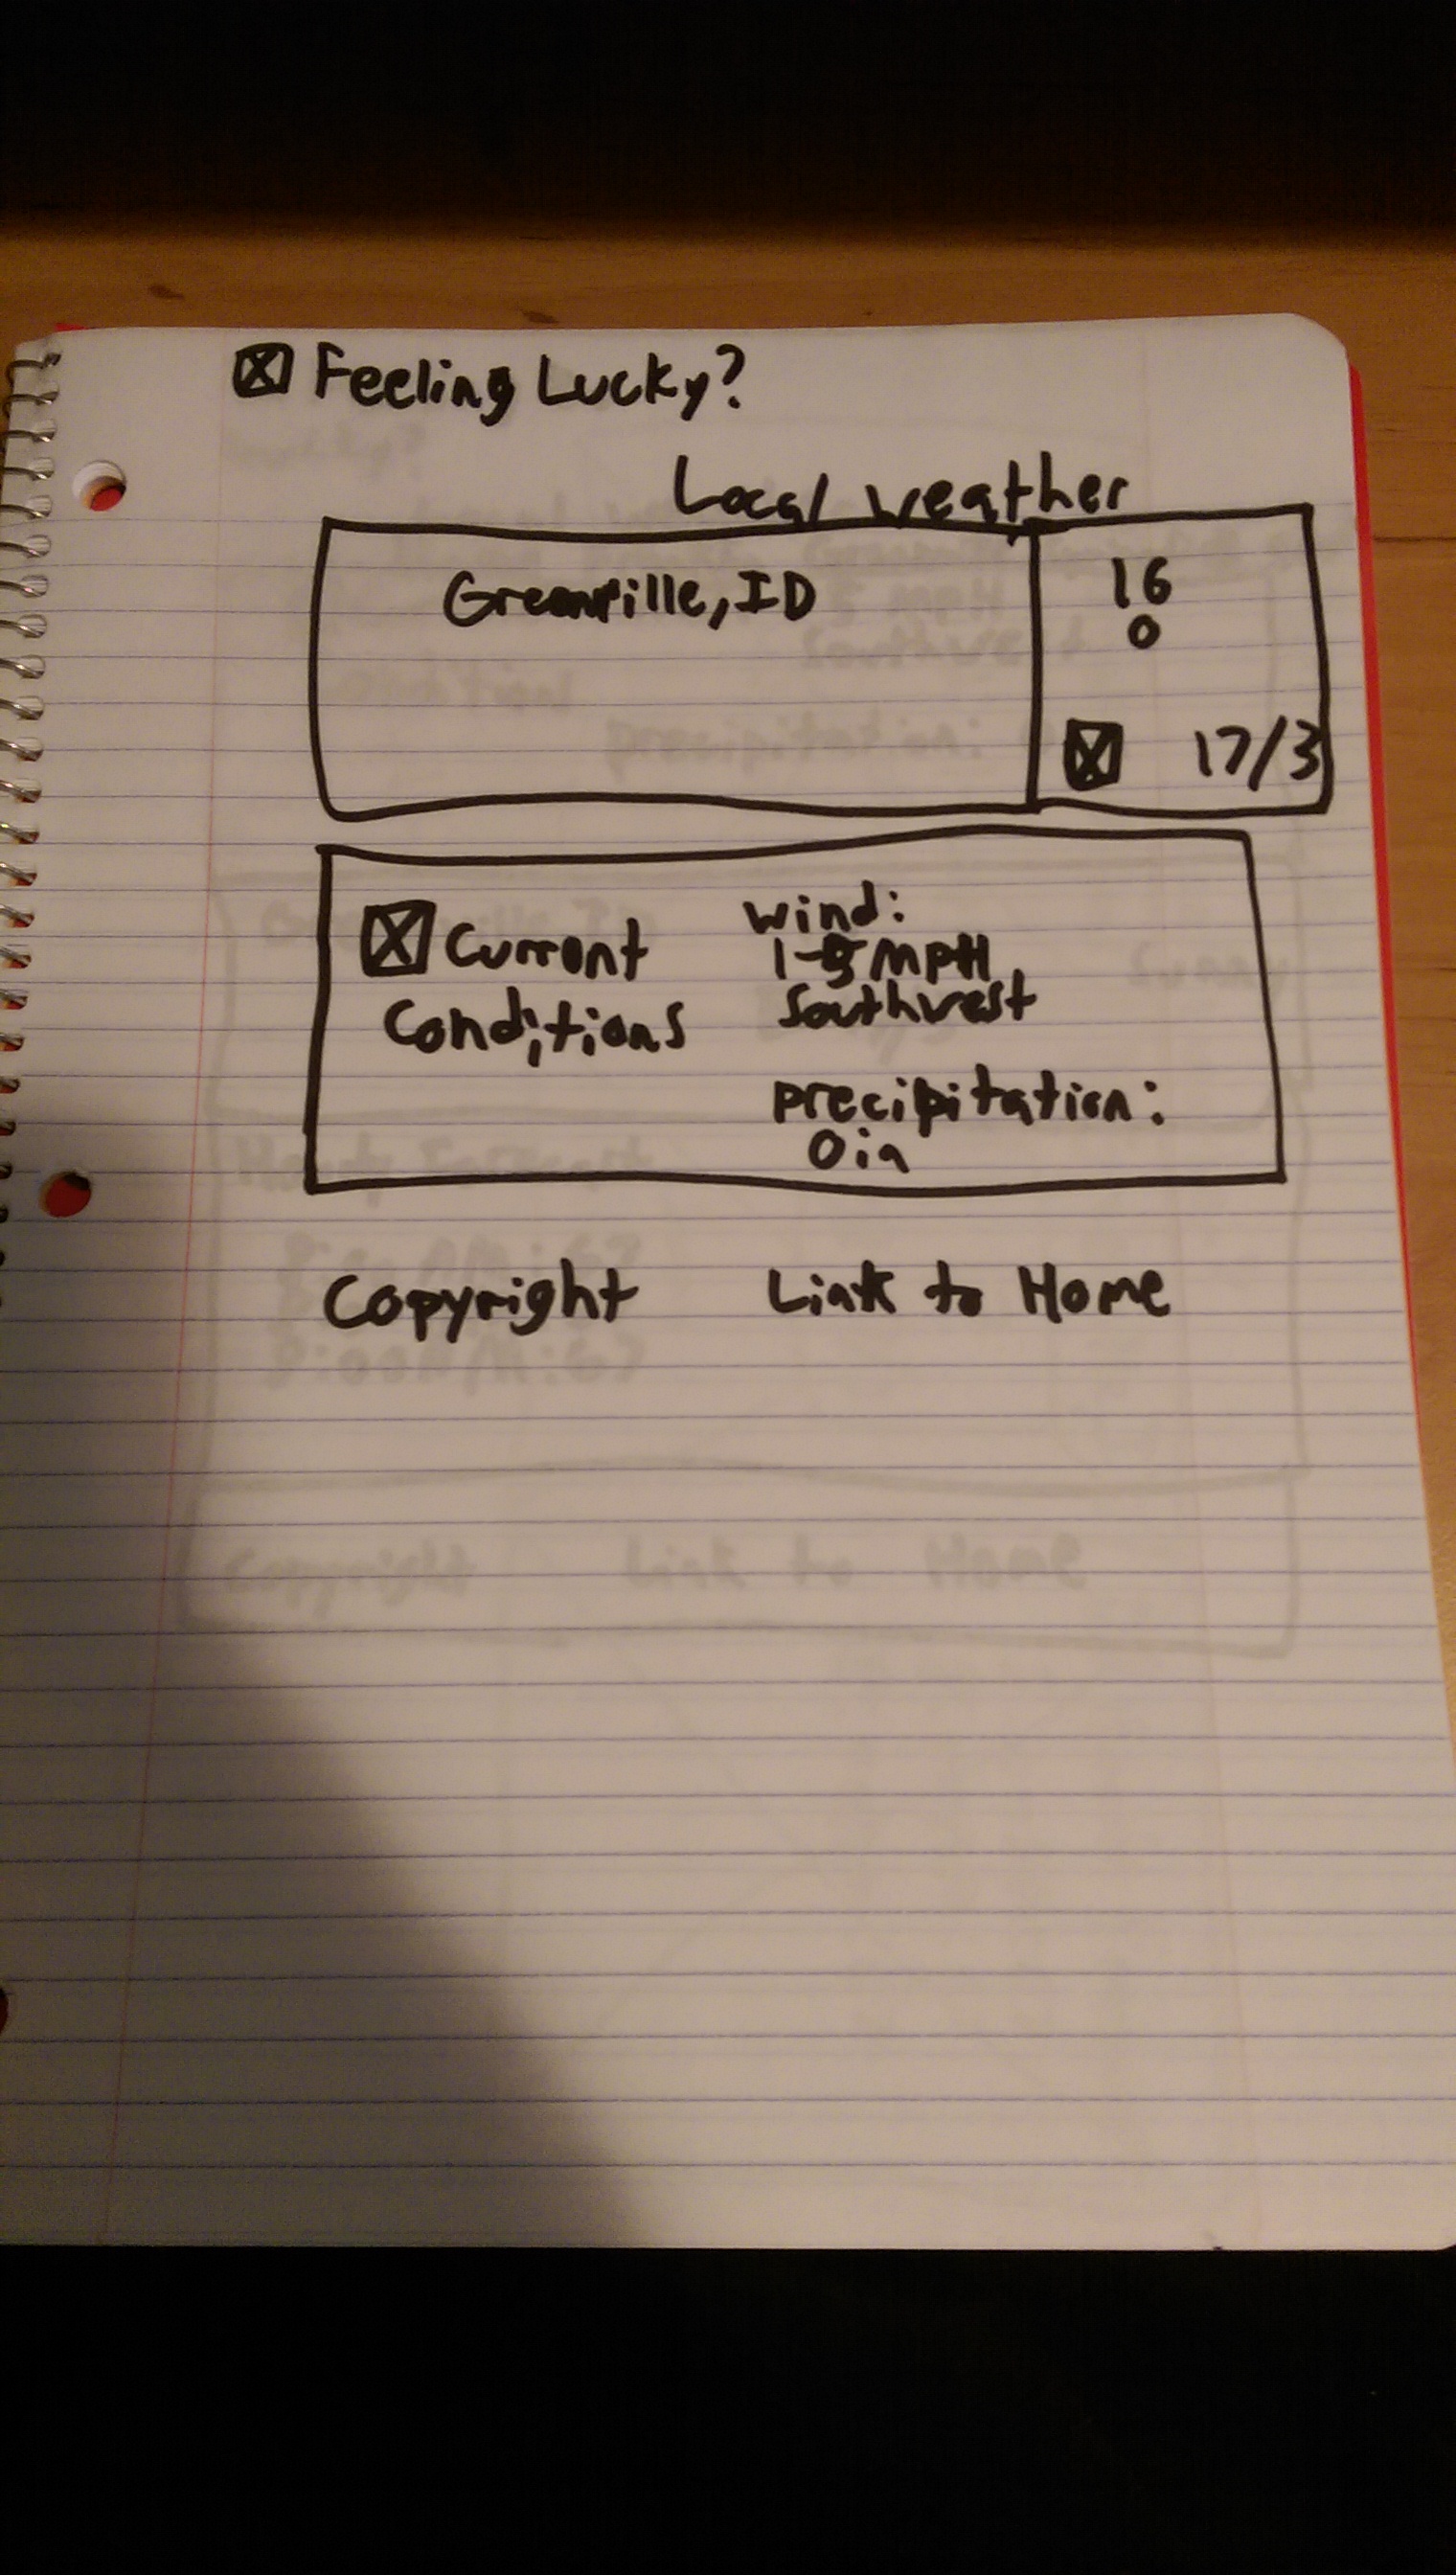 Feeling Lucky?
Local weather
Greenville, ID
16
0
17/3
Current
Conditions
wind:
1-5 MPH,
Southwest
precipitation:
0in
Copyright
Link to Home